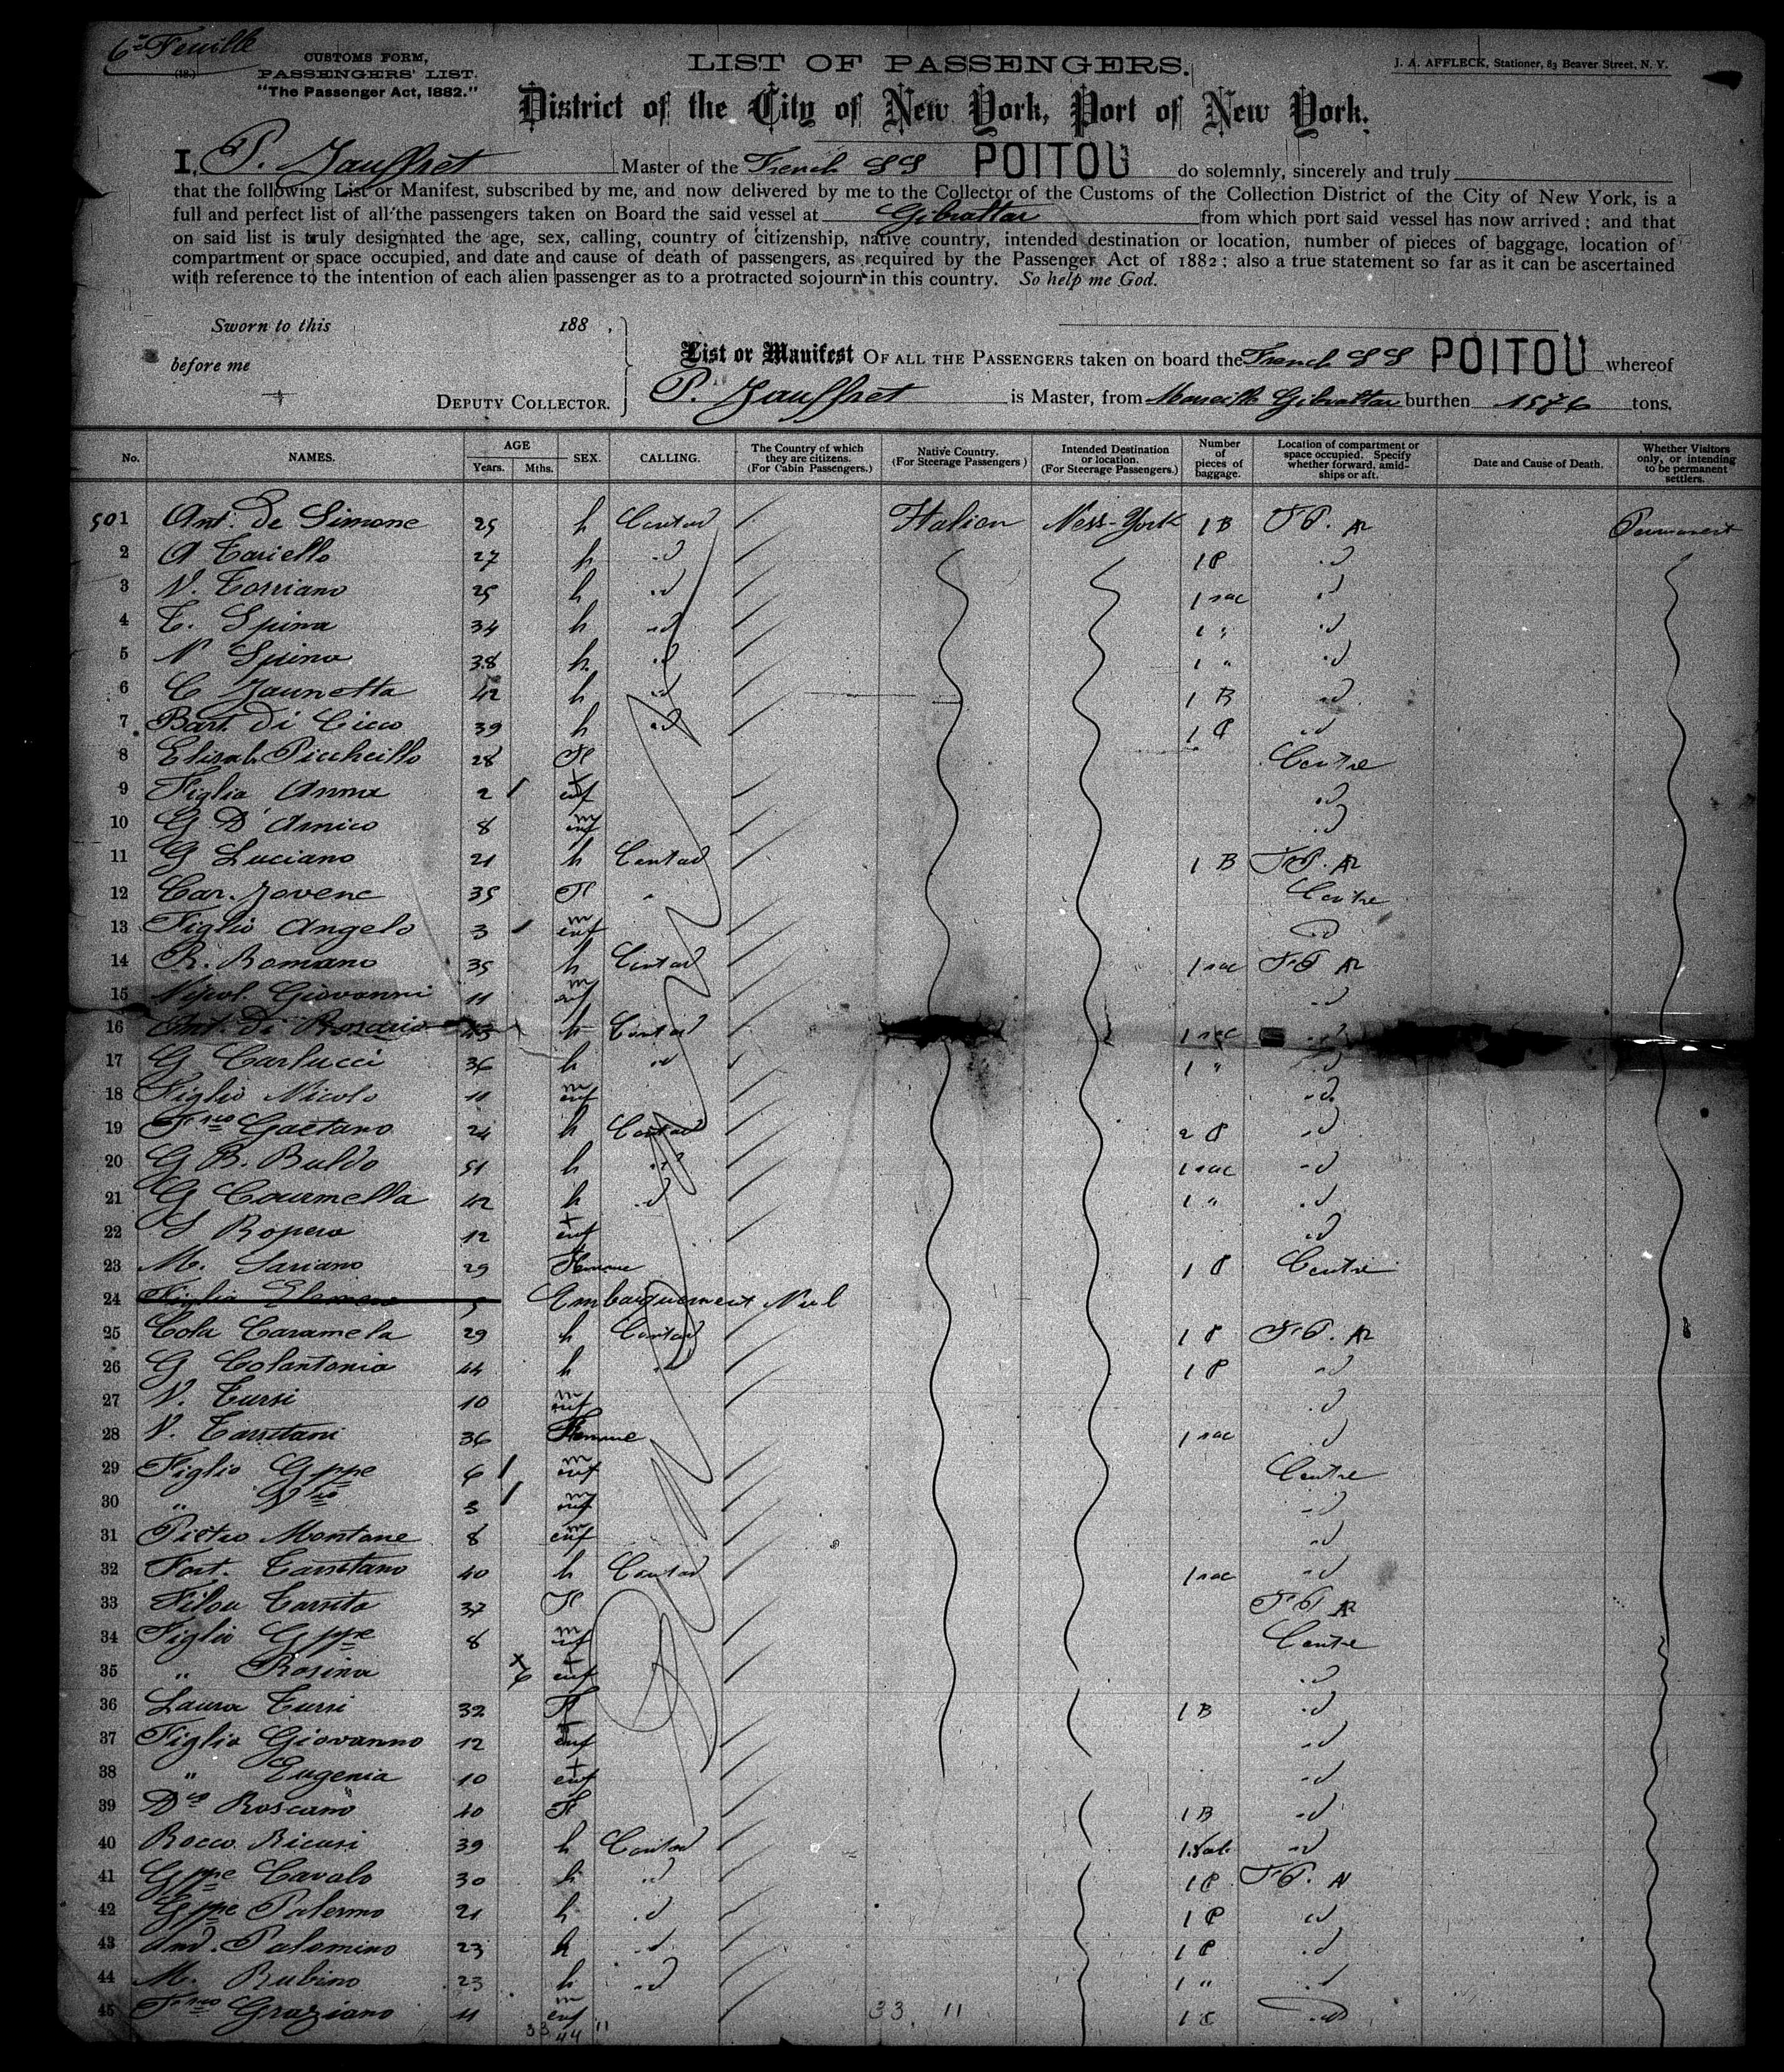 6e Feuille
(18.)
CUSTOMS FORM,
PASSENGERS' LIST.
"The Passenger Act, 1882."
LIST OF PASSENGERS.
J. A. AFFLECK, Stationer, 83 Beaver Street, N. Y.
District of the City of New York, Port of New York.
I, P. Jauffret Master of the French SS POITOU do solemnly, sincerely and truly
that the following List or Manifest, subscribed by me, and now delivered by me to the Collector of the Customs of the Collection District of the City of New York, is a
full and perfect list of all the passengers taken on Board the said vessel at Gibraltar from which port said vessel has now arrived; and that
on said list is truly designated the age, sex, calling, country of citizenship, native country, intended destination or location, number of pieces of baggage, location of
compartment or space occupied, and date and cause of death of passengers, as required by the Passenger Act of 1882; also a true statement so far as it can be ascertained
with reference to the intention of each alien passenger as to a protracted sojourn in this country. So help me God.
Sworn to this 188 .
before me
DEPUTY COLLECTOR.
List or Manifest OF ALL THE PASSENGERS taken on board the French SS POITOU whereof
P. Jauffret is Master, from Marseille Gibraltar burthen 1576 tons.
No. NAMES. AGE Years. Mths. SEX. CALLING. The Country of which they are citizens. (For Cabin Passengers.) Native Country. (For Steerage Passengers) Intended Destination or location. (For Steerage Passengers.) Number of pieces of baggage. Location of compartment or space occupied. Specify whether forward, amidships or aft. Date and Cause of Death. Whether Visitors only, or intending to be permanent settlers.
501 Ant. De Simone 25 h Contad Italien New-York 1 B Permanent
2 A Cariello 27 h id 1 P id
3 V. 25 h id 1 sac id
4 Spina 34 h id 1 " id
5 N Spina 38 h id 1 " id
6 C Jaunetta 42 h id 1 B id
7 Bart. Di Cicco 39 h id 1 P id
8 Elisab. Picchcillo 28 F Centre
9 Figlia Anna 2 enf id
10 G D'Amico 8 m enf id
11 G Luciano 21 h Contad 1 B
12 Car. Jovene 35 F " Centre
13 Figlio Angelo 3 m enf id
14 R. Romano 35 h Contad 1 sac
15 Nipol. Giovanni 11 m enf id
16 Ant. Di Rosario h Contad 1 sac id
17 G Carlucci 36 h id 1 " id
18 Figlio Nicolo 11 m enf id
19 Fnco Gaetano 24 h Contad 2 P id
20 G B. Buldo 51 h id 1 sac id
21 G Courmella 42 h id 1 " id
22 S Ropero 12 enf id
23 M. Sariano 29 Femme 1 P Centre
24 Figlia 5 Embarquement Nul
25 Cola Caramela 29 h Contad 1 P
26 G Colantonia 44 h id 1 P id
27 V. Tursi 10 m enf id
28 V. Tarsitani 36 Femme 1 sac id
29 Figlio Gppe 6 m enf Centre
30 " 3 m enf id
31 Pietro Montane 8 m enf id
32 Fort. Tarsitano 40 h Contad 1 sac id
33 Filou Tarsita 37 F
34 Figlio Gppe 8 m enf Centre
35 " Rosina 6 enf id
36 Laura Tursi 32 F 1 B id
37 Figlia Giovanno 12 enf id
38 " Eugenia 10 enf id
39 Dco Roscano 40 F 1 B id
40 Rocco Ricusi 39 h Contad id
41 Gppe Cavalo 30 h id 1 P
42 Gppe Palermo 21 h id 1 P id
43 And. Palomino 23 h id 1 P id
44 M. Rubino 23 h id 1 " id
45 Fnco Graziano 11 m enf 33 11 id
33 44 11